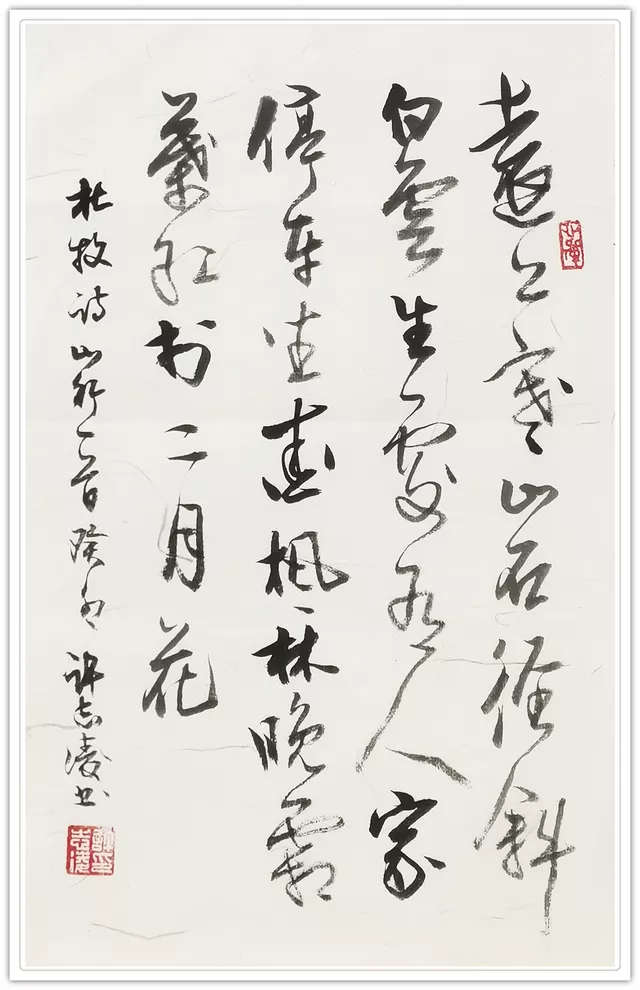 遠上寒山石径斜
白雲生處有人家
停车坐愛枫林晚霜
葉红於二月花
杜牧诗山行一首癸卯 许志凌书